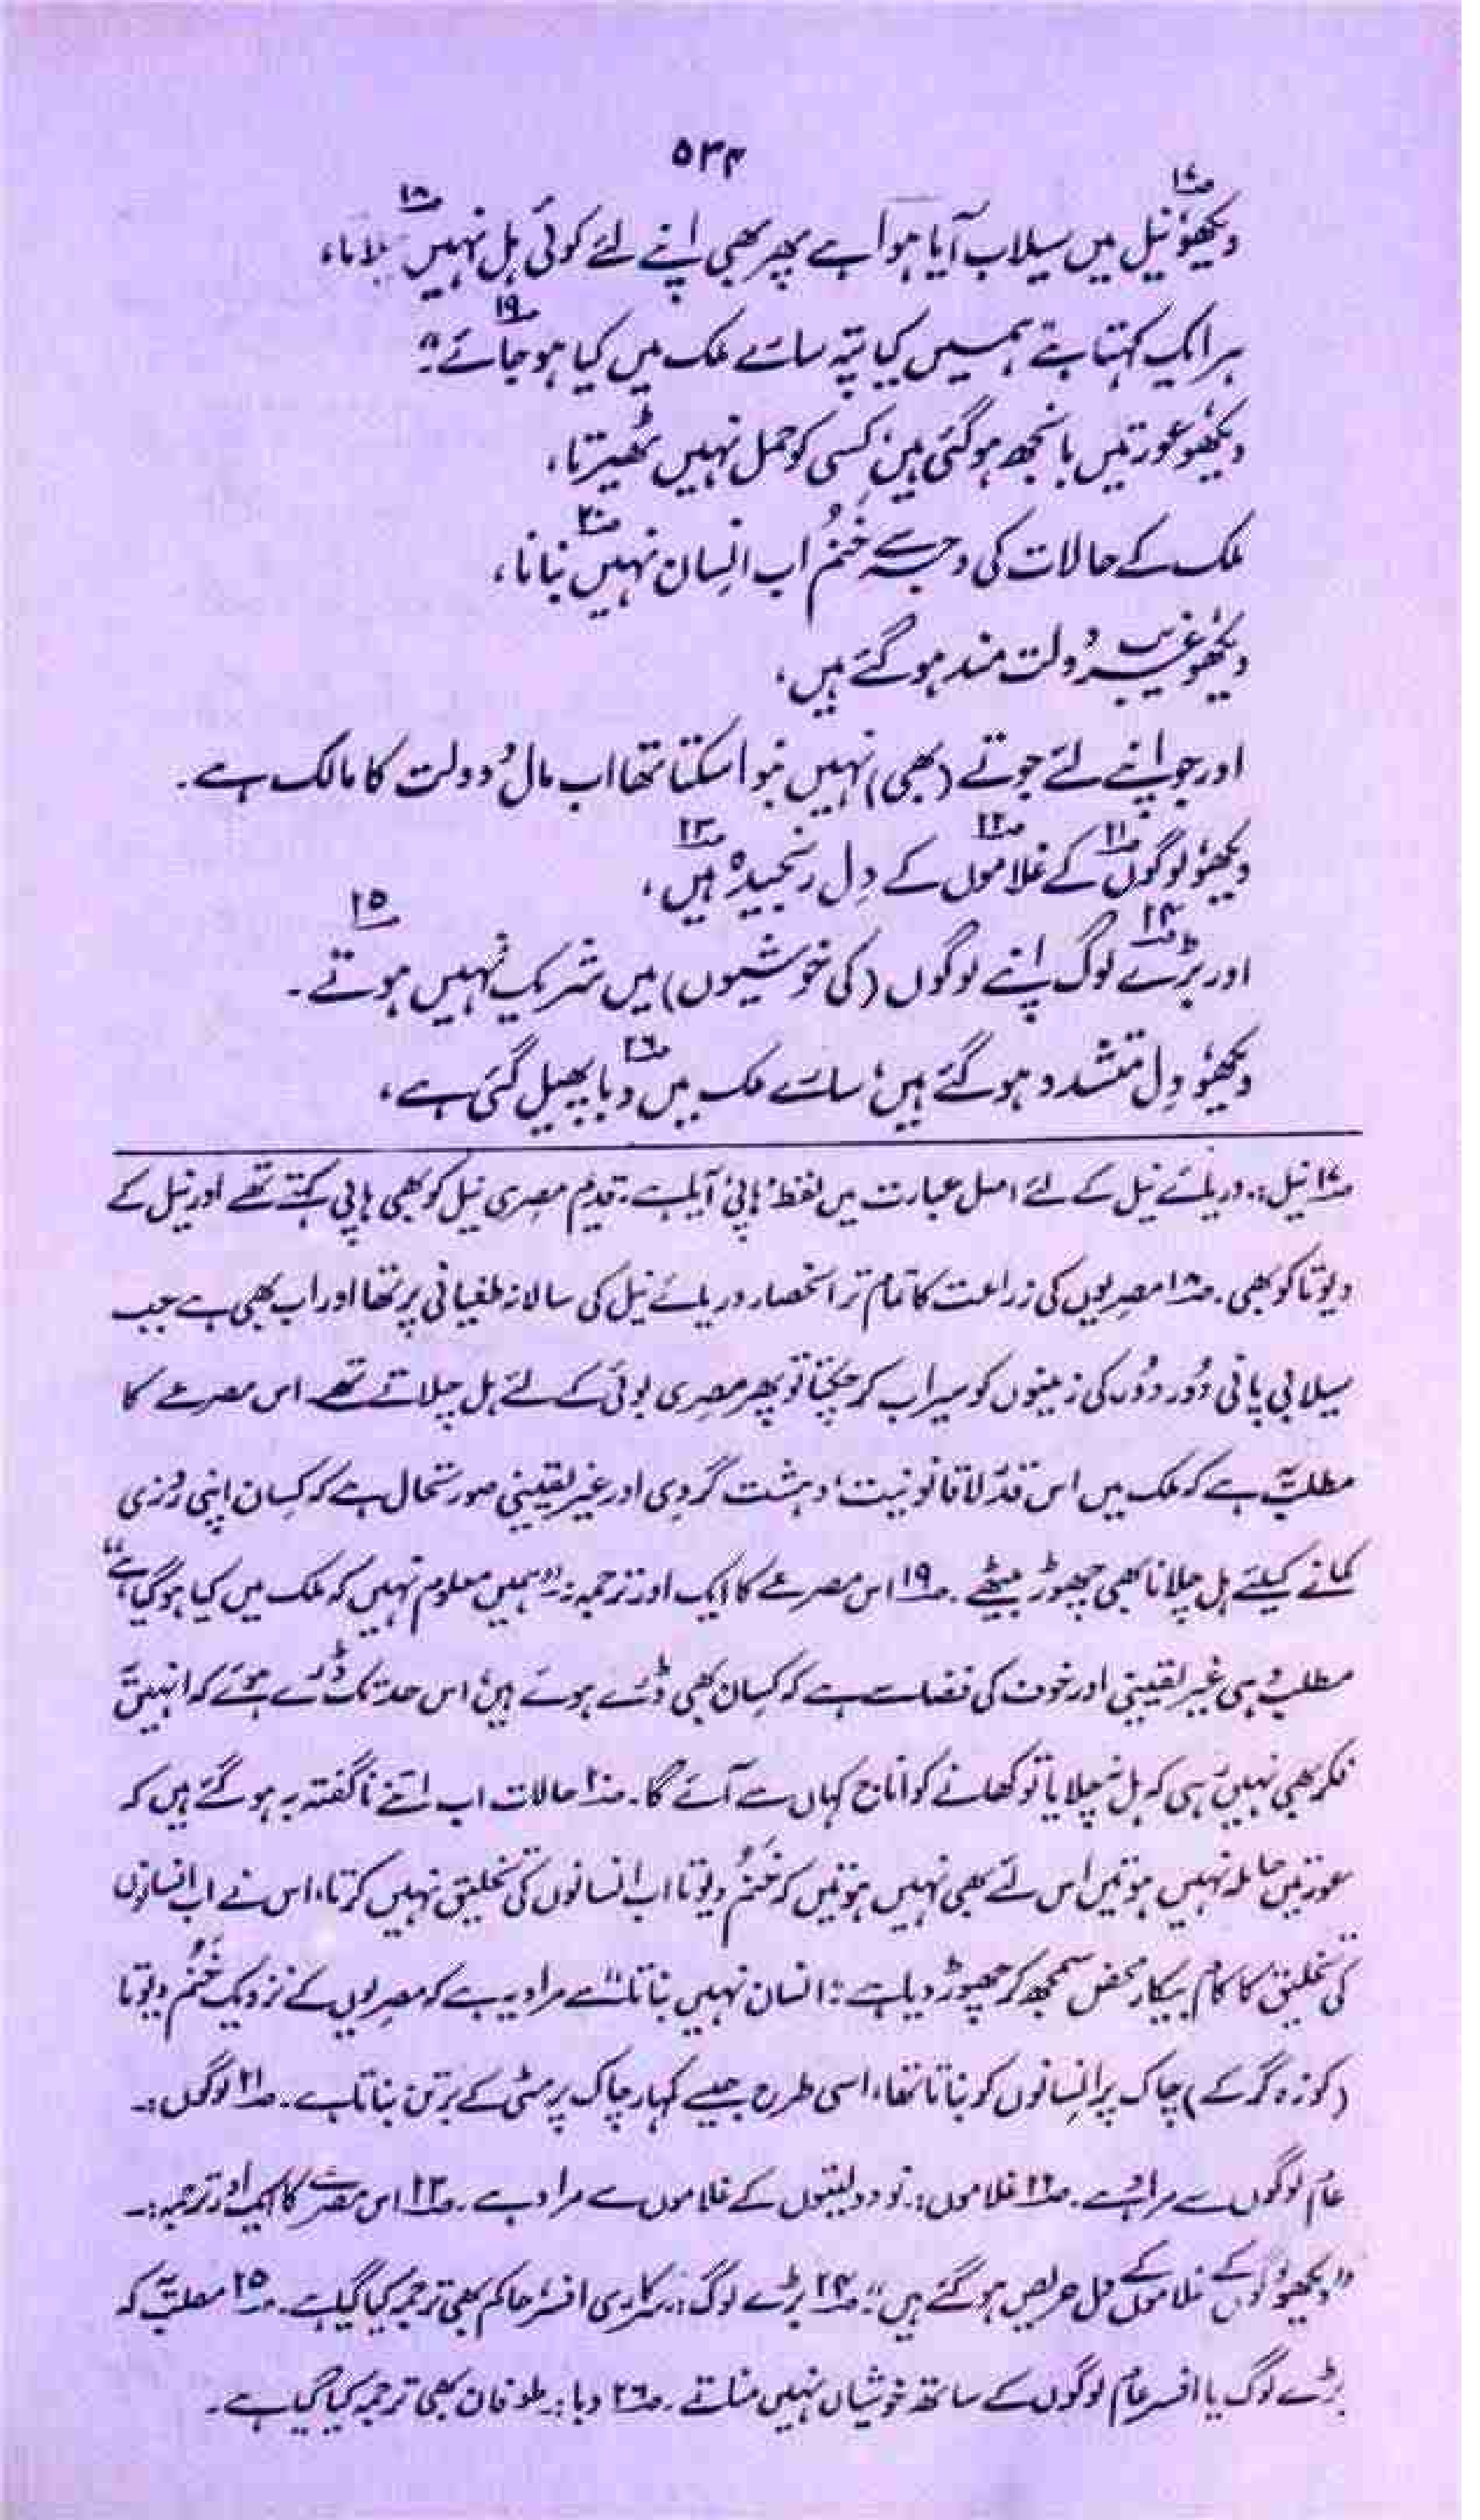 ۵۳۴
دیکھو، نیل۱۷ میں سیلاب آیا ہوا ہے پھر بھی اپنے لئے کوئی ہل نہیں۱۸ چلاتا،
ہر ایک کہتا ہے ہمیں کیا پتہ سارے ملک میں کیا ہو جائے۱۹"۔
دیکھو، عورتیں بانجھ ہو گئی ہیں، کسی کو حمل نہیں ٹھیرتا،
ملک کے حالات کی وجہ سے خُنُم اب اِنسان نہیں۲۰ بناتا،
دیکھو، غریب دولت مند ہو گئے ہیں،
اور جو اپنے لئے جوتے (بھی) نہیں بنوا سکتا تھا اب مال و دولت کا مالک ہے۔
دیکھو، لوگوں۲۱ کے غلاموں۲۲ کے دِل رنجیدہ۲۳ ہیں،
اور بڑے۲۴ لوگ اپنے لوگوں (کی خوشیوں) میں شریک نہیں ہوتے۲۵۔
دیکھو، دِل متشدد ہو گئے ہیں، سارے ملک میں وبا۲۶ پھیل گئی ہے،
۱۷ نیل:۔ دریائے نیل کے لئے اصل عبارت میں لفظ 'ہاپی' آیا ہے۔ قدیم مصری نیل کو بھی ہاپی کہتے تھے اور نیل کے
دیوتا کو بھی۔ ۱۸ مصریوں کی زراعت کا تمام تر انحصار دریائے نیل کی سالانہ طغیانی پر تھا اور اب بھی ہے جب
سیلابی پانی دُور دُور کی زمینوں کو سیراب کر چکتا تو پھر مصری بوائی کے لئے ہل چلاتے تھے۔ اس مصرعے کا
مطلب یہ ہے کہ ملک میں اس قدر لاقانونیت، دہشت گردی اور غیر یقینی صورتحال ہے کہ کسان اپنی روزی
کمانے کیلئے ہل چلانا بھی چھوڑ بیٹھے۔ ۱۹ اس مصرعے کا ایک اور ترجمہ:۔ "ہمیں معلوم نہیں کہ ملک میں کیا ہو گیا ہے"
مطلب وہی غیر یقینی اور خوف کی فضا سے ہے کہ کسان بھی ڈرے ہوئے ہیں، اس حد تک ڈرے ہوئے کہ انہیں یہ
فکر بھی نہیں رہی کہ ہل نہ چلایا تو کھانے کو اناج کہاں سے آئے گا۔ ۲۰ حالات اب اتنے ناگفتہ بہ ہو گئے ہیں کہ
عورتیں حاملہ نہیں ہوتیں اس لئے بھی نہیں ہوتیں کہ خُنُم دیوتا اب انسانوں کی تخلیق نہیں کرتا، اس نے اب انسانوں
کی تخلیق کا کام بیکار محض سمجھ کر چھوڑ دیا ہے: "انسان نہیں بناتا" سے مراد یہ ہے کہ مصریوں کے نزدیک خُنُم دیوتا
(کوزہ گر کے) چاک پر اِنسانوں کو بناتا تھا، اسی طرح جیسے کمہار چاک پر مٹی کے برتن بناتا ہے۔ ۲۱ لوگوں:۔
عام لوگوں سے مراد ہے۔ ۲۲ غلاموں:۔ نو دولتیوں کے غلاموں سے مراد ہے۔ ۲۳ اس مصرعے کا ایک اور ترجمہ:۔
"دیکھو، لوگوں کے غلاموں کے دل حریص ہو گئے ہیں"۔ ۲۴ بڑے لوگ:۔ سرکاری افسر، حاکم بھی ترجمہ کیا گیا ہے۔ ۲۵ مطلب یہ کہ
بڑے لوگ یا افسر عام لوگوں کے ساتھ خوشیاں نہیں مناتے۔ ۲۶ وبا:۔ طوفان بھی ترجمہ کیا گیا ہے۔